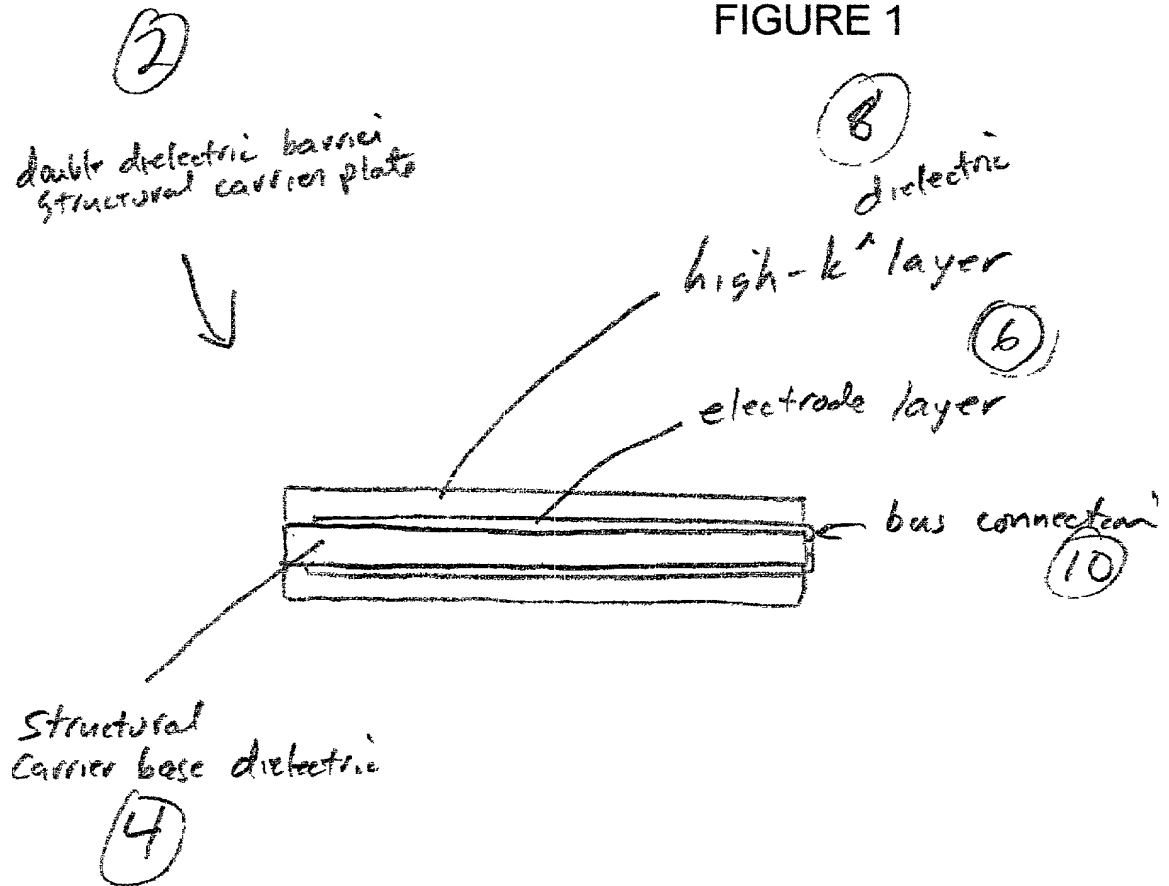 FIGURE 1
2
double dielectric barrier
structural carrier plate
8
dielectric
high-k ^ layer
6
electrode layer
bus connection
10
Structural
Carrier base dielectric
4